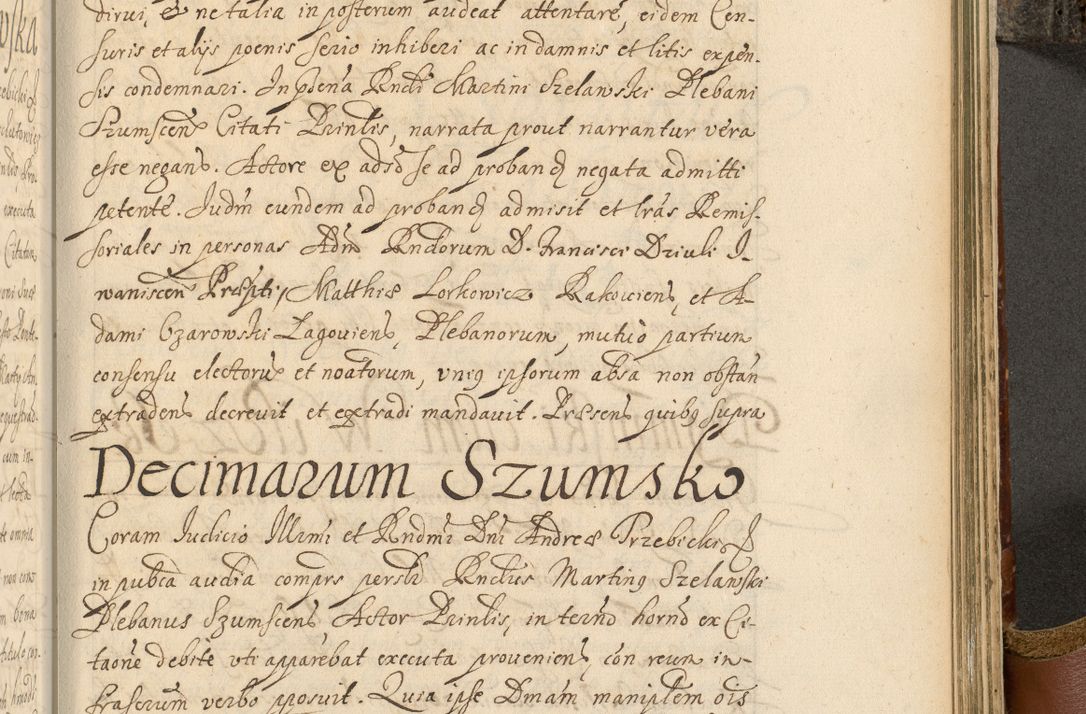 dirui, & ne talia in posterum audeat attentare, eidem Cen-
suris et alys poenis serio inhiberi ac in damnis et litis expen-
sis condemnari. In pñtia Rndi Martini Szelawski Plebani
Szumscen Citati Prinlis, narrata prout narrantur vera
esse negans. Actore ex adso se ad proband negata admitti
petente. Judm eundem ad proband admisit et lras Remis-
soriales in personas Adm Rndorum D. Francisci Dziuli J-
waniscen Præpti, Matthiæ Lorkowicz Rakowiens, et A-
dami Ozarowski Lagoviens, Plebanorum, mutuo partium
consensu electorū et noatorum, vneg ipsorum absa non obstan
extradens decrevit et extradi mandavit. Præsens quibg supra
Decimarum Szumsko
Coram Judicio Illmi et Rndmi Dni Andreæ Trzebicki
in pubca audia comprs persld Rndus Marting Szelawski
Plebanus Szumscens Actor Prinlis, in termo horno ex Ci-
taone debite vti apparebat executa proveniens, con reum in-
frascrum verbo pposuit. Quia ipse Dmam maniplem ois